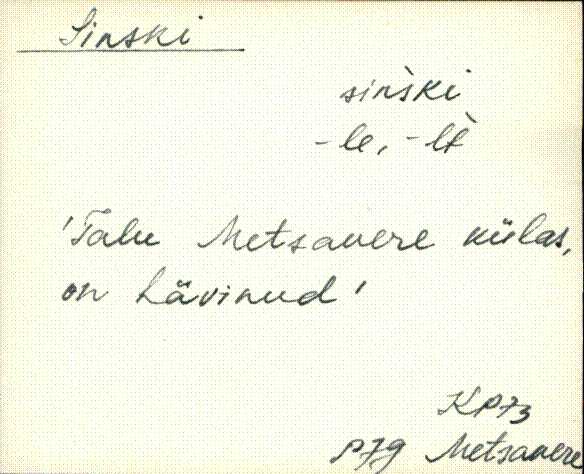 Sinski
sinski
-le, -lt
'Talu Metsavere külas,
on hävinud'
KP73
Metsavere